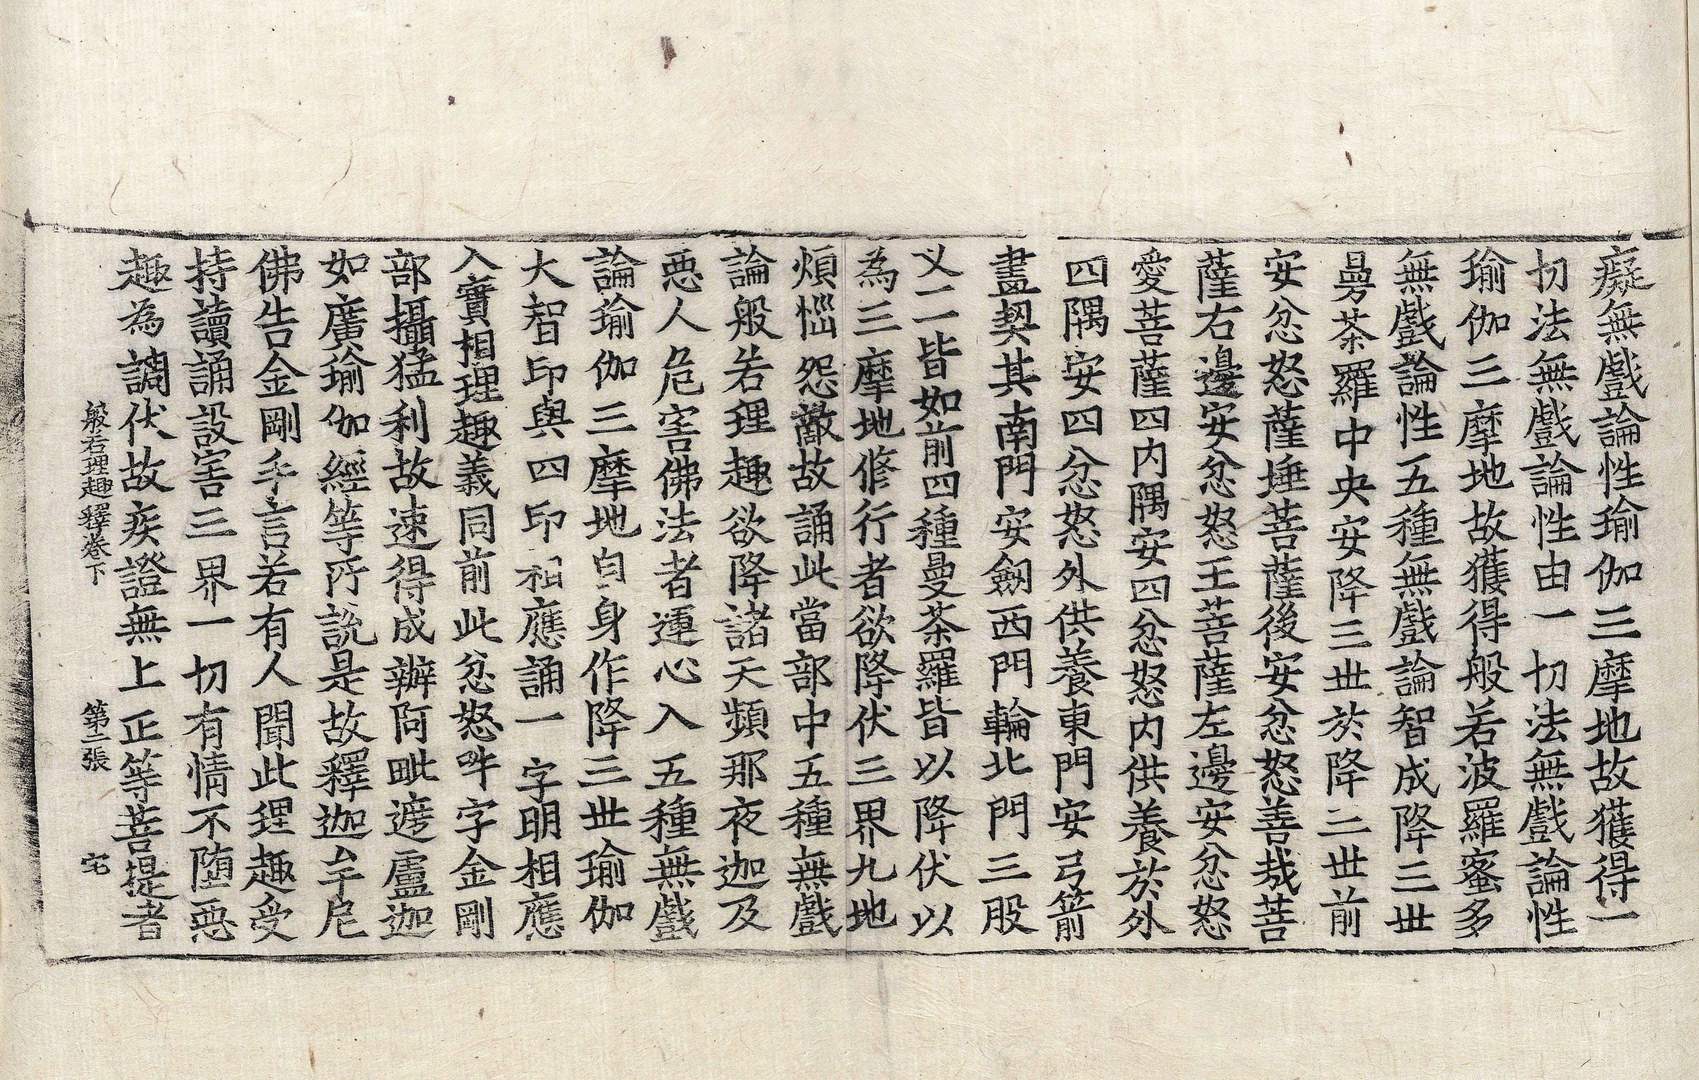 癡無戲論性瑜伽三摩地故獲得一
切法無戲論性由一切法無戲論性
瑜伽三摩地故獲得般若波羅蜜多
無戲論性五種無戲論智成降三世
曼荼羅中央安降三世於降三世前
安忿怒薩埵菩薩後安忿怒善哉菩
薩右邊安忿怒王菩薩左邊安忿怒
愛菩薩四內隅安四忿怒內供養於外
四隅安四忿怒外供養東門安弓箭
畫契其南門安劒西門輪北門三股
义二皆如前四種曼荼羅皆以降伏以
為三摩地修行者欲降伏三界九地
煩惱怨敵故誦此當部中五種無戲
論般若理趣欲降諸天頻那夜迦及
惡人危害佛法者運心入五種無戲
論瑜伽三摩地自身作降三世瑜伽
大智印與四印相應誦一字明相應
入實相理趣義同前此忿怒吽字金剛
部攝猛利故速得成辦阿毗遮盧迦
如廣瑜伽經等所說是故釋迦牟尼
佛告金剛手言若有人聞此理趣受
持讀誦設害三界一切有情不墮惡
趣為調伏故疾證無上正等菩提者
般若理趣釋卷下 第二張 宅